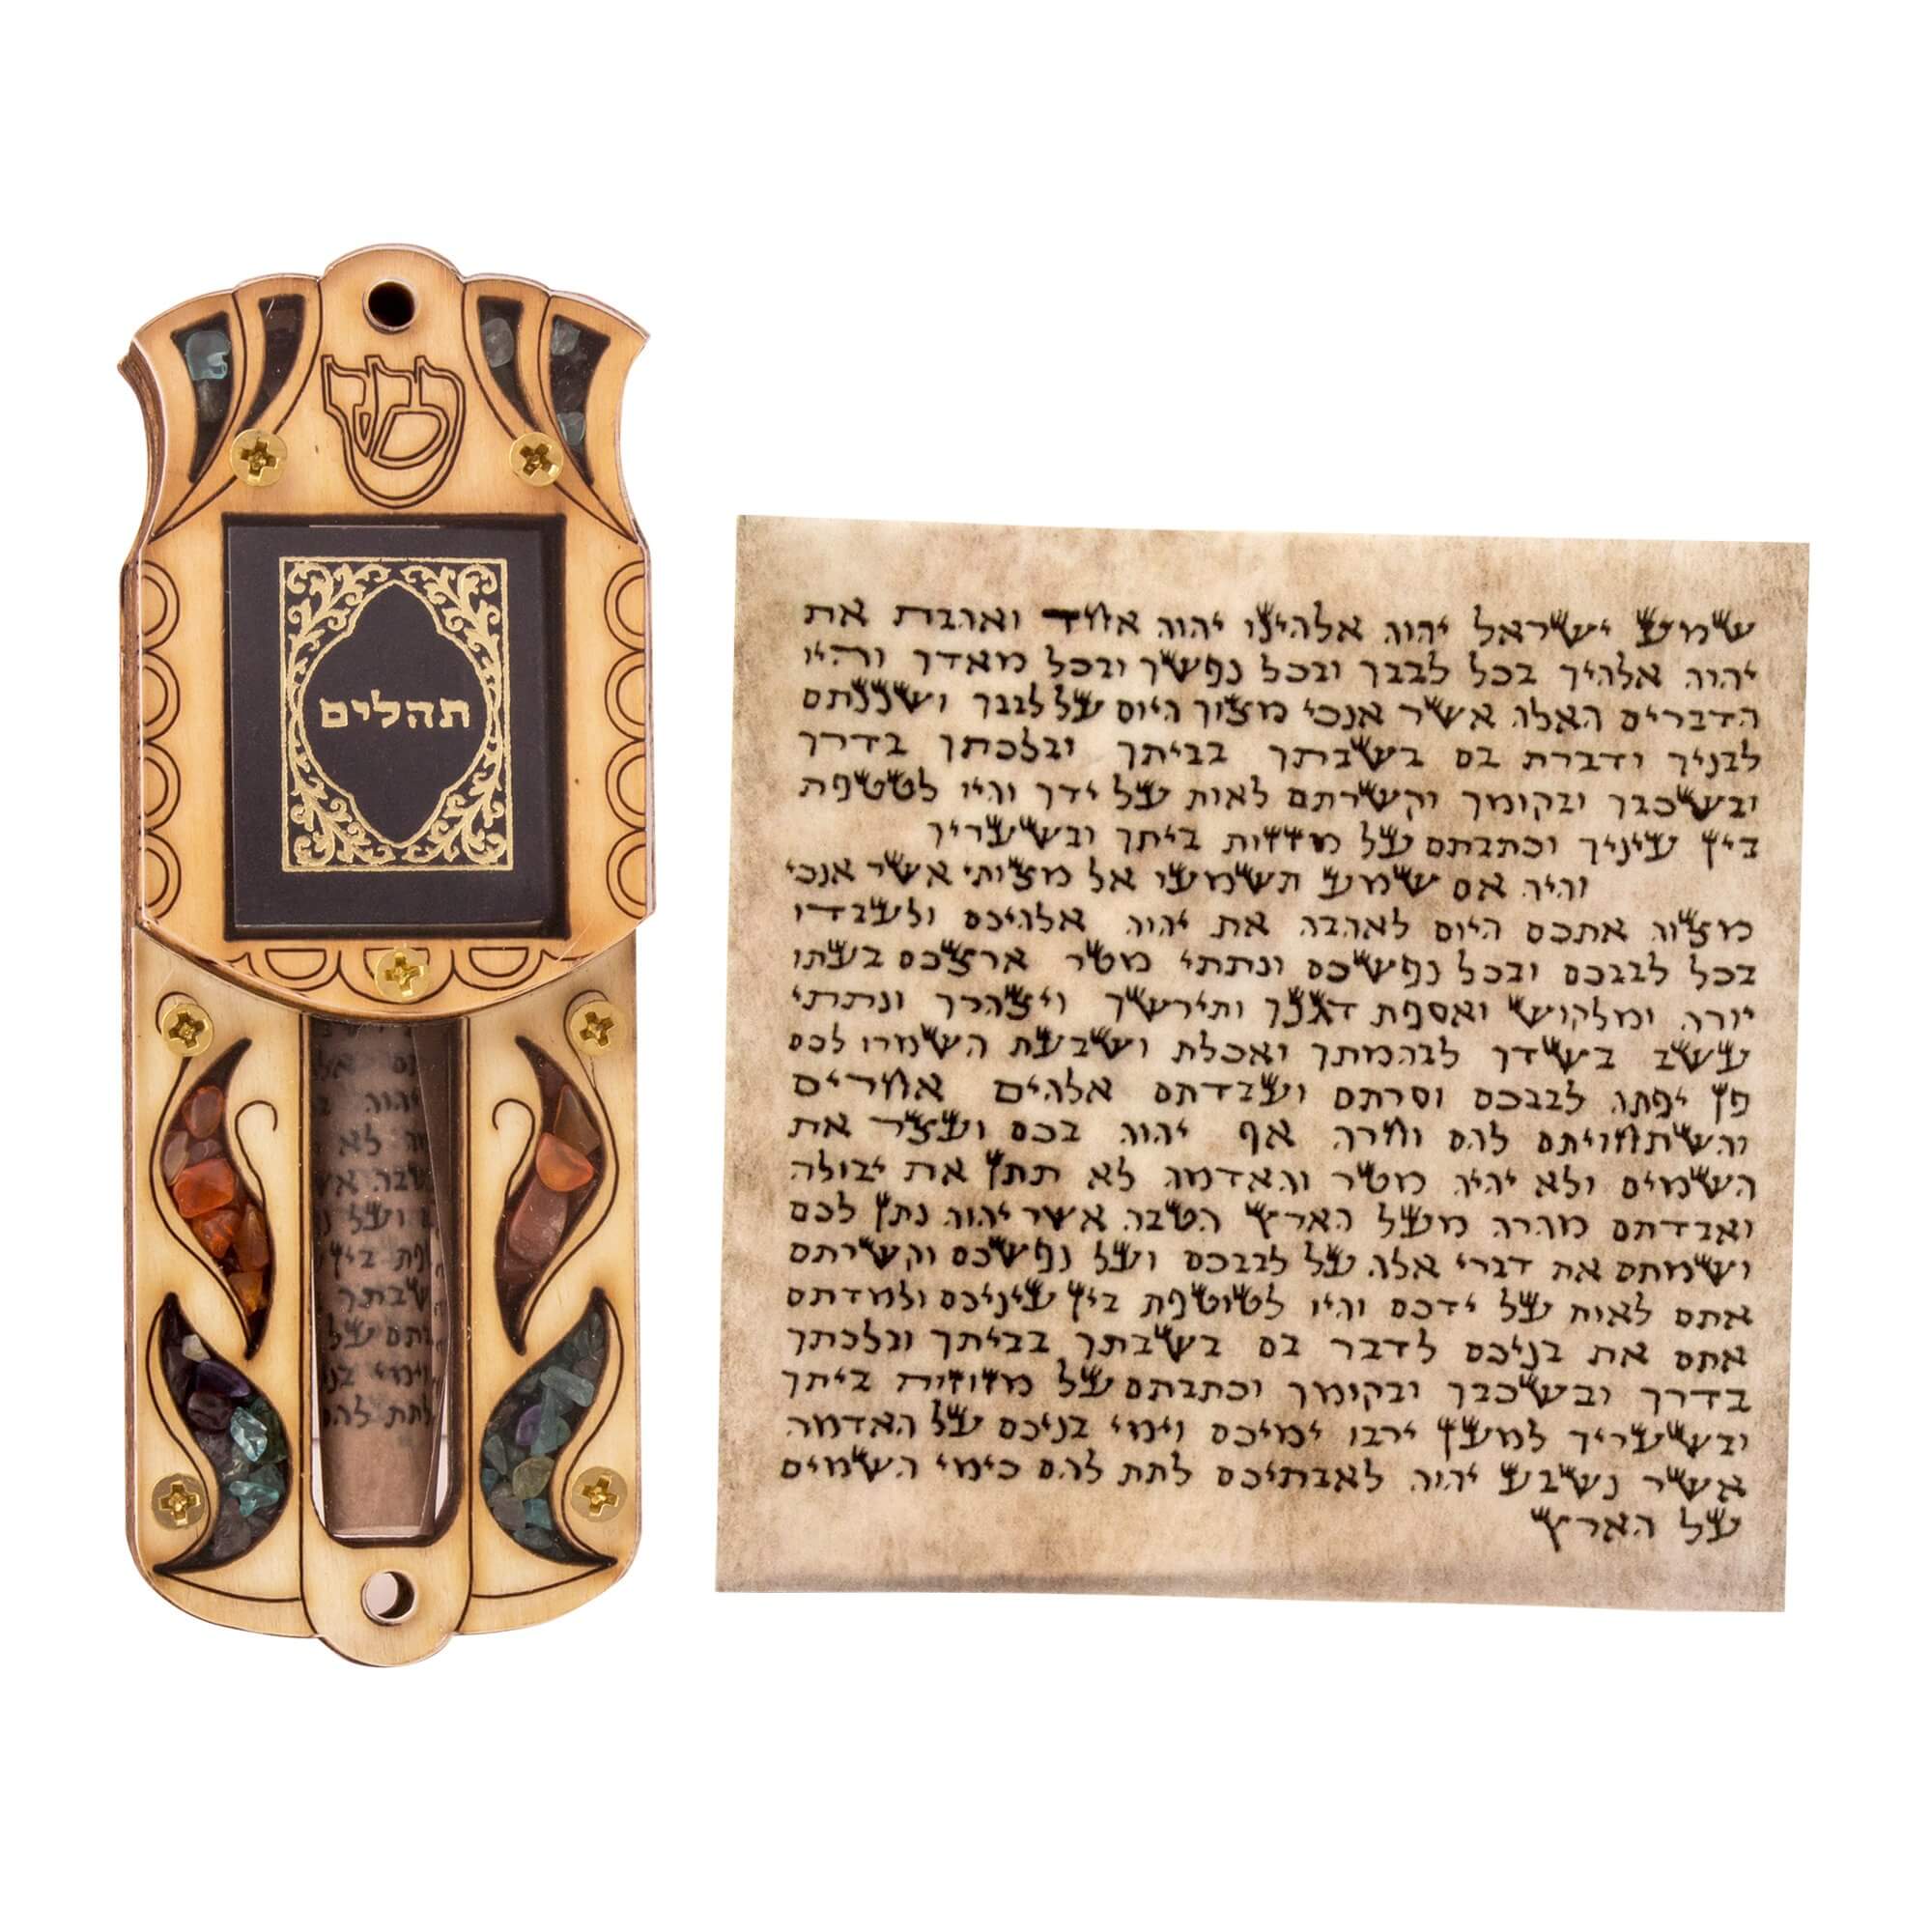 ש
תהלים
שמע ישראל יהוה אלהינו יהוה אחד ואהבת את
יהוה אלהיך בכל לבבך ובכל נפשך ובכל מאדך והיו
הדברים האלה אשר אנכי מצוך היום על לבבך ושננתם
לבניך ודברת בם בשבתך בביתך ובלכתך בדרך
ובשכבך ובקומך וקשרתם לאות על ידך והיו לטטפת
בין עיניך וכתבתם על מזזות ביתך ובשעריך
והיה אם שמע תשמעו אל מצותי אשר אנכי
מצוה אתכם היום לאהבה את יהוה אלהיכם ולעבדו
בכל לבבכם ובכל נפשכם ונתתי מטר ארצכם בעתו
יורה ומלקוש ואספת דגנך ותירשך ויצהרך ונתתי
עשב בשדך לבהמתך ואכלת ושבעת השמרו לכם
פן יפתה לבבכם וסרתם ועבדתם אלהים אחרים
והשתחויתם להם וחרה אף יהוה בכם ועצר את
השמים ולא יהיה מטר והאדמה לא תתן את יבולה
ואבדתם מהרה מעל הארץ הטבה אשר יהוה נתן לכם
ושמתם את דברי אלה על לבבכם ועל נפשכם וקשרתם
אתם לאות על ידכם והיו לטוטפת בין עיניכם ולמדתם
אתם את בניכם לדבר בם בשבתך בביתך ובלכתך
בדרך ובשכבך ובקומך וכתבתם על מזוזות ביתך
ובשעריך למען ירבו ימיכם וימי בניכם על האדמה
אשר נשבע יהוה לאבתיכם לתת להם כימי השמים
על הארץ